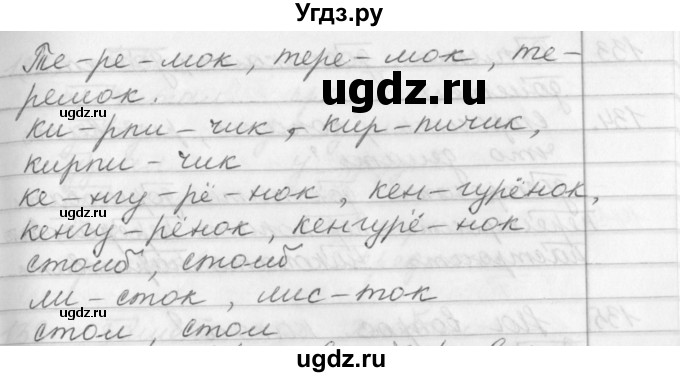 Угдз.ру
Те-ре-мок, тере-мок, те-
ugdz.ru
ремок.
ugdz.ru
ки-рпи-чик, кир-пичик,
кирпи-чик
ке-нгу-рё-нок, кен-гурёнок,
ugdz.ru
кенгу-рёнок, кенгурё-нок
столб, столб
ли-сток, лис-ток
стол, стол
ugdz.ru
ugdz.ru